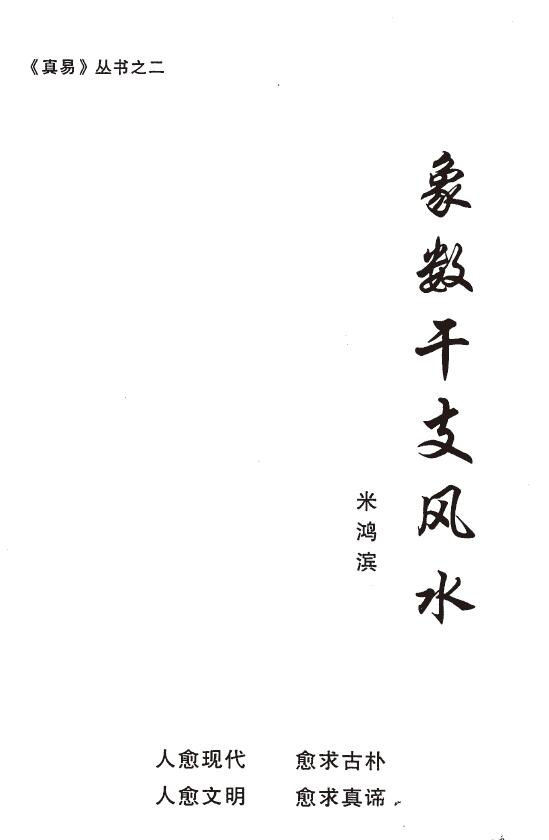 《真易》丛书之二
象数干支风水
米鸿滨
人愈现代 愈求古朴
人愈文明 愈求真谛